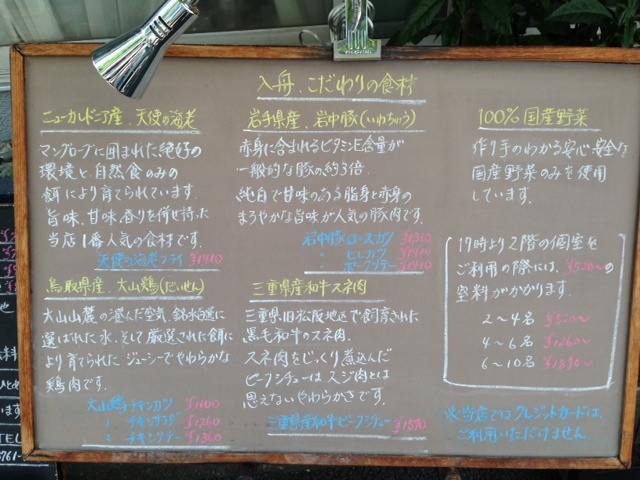 入舟、こだわりの食材
ニューカレドニア産、天使の海老
マングローブに囲まれた絶好の
環境と自然食のみの
餌により育てられています。
旨味、甘味、香りを併せ持った
当店1番人気の食材です。
天使の海老フライ
岩手県産、岩中豚(いわちゅう)
赤身に含まれるビタミンE含量が
一般的な豚の約3倍。
純白で甘味のある脂身と赤身の
まろやかな旨味が人気の豚肉です。
岩中豚ロースカツ ¥1,350
〃 ヒレカツ
〃 ポークソテー
100%国産野菜
作り手のわかる安心、安全な
国産野菜のみを使用
しています。
鳥取県産、大山鶏(だいせん)
大山山麓の澄んだ空気、銘水百選に
選ばれた水、そして厳選された餌に
より育てられたジューシーでやわらかな
鶏肉です。
大山鶏チキンカツ
〃 チキンサラダ ¥1260
〃 チキンソテー ¥1360
三重県産和牛スネ肉
三重県旧松阪地区で飼育された
黒毛和牛のスネ肉。
スネ肉をじっくり煮込んだ
ビーフシチューはスジ肉とは
思えないやわらかさです。
三重県産和牛ビーフシチュー
17時より2階の個室を
ご利用の際には、¥520〜の
室料がかかります。
2〜4名 ¥520〜
4〜6名 ¥1,260〜
6〜10名
※当店ではクレジットカードは、
ご利用いただけません。